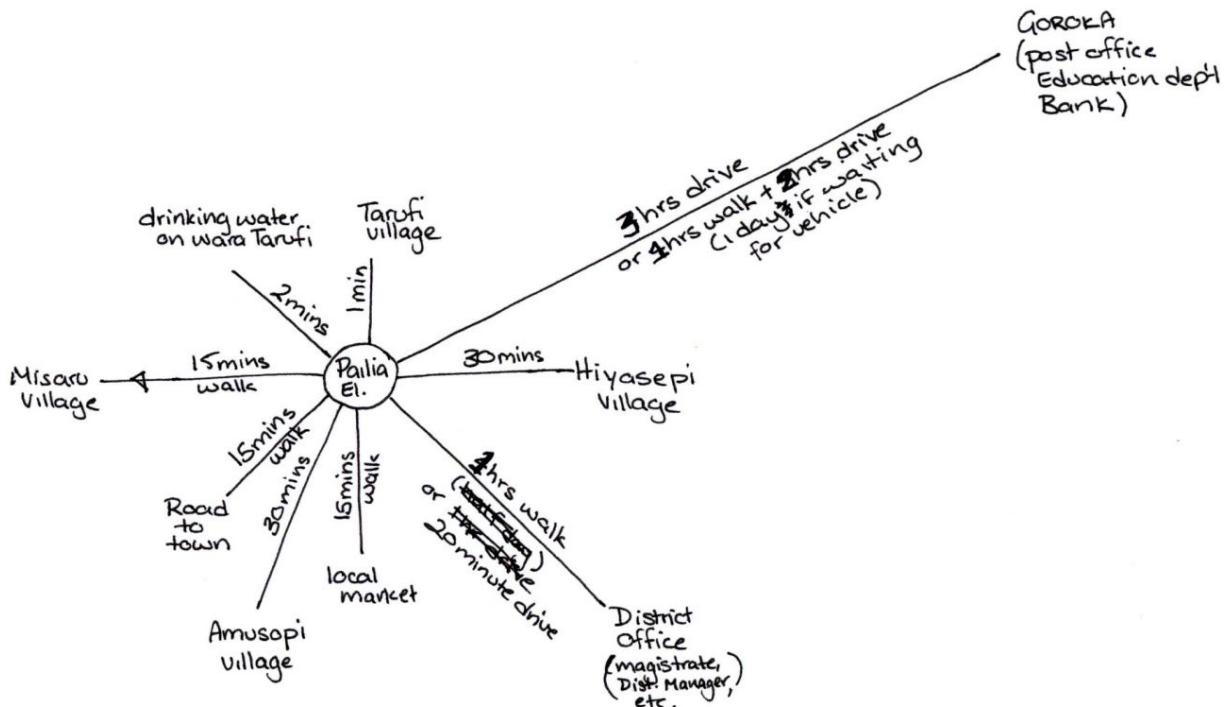 GOROKA
(post office
Education dep't
Bank)
3hrs drive
or 4hrs walk + 2hrs drive
(1 day if waiting
for vehicle)
drinking water
on wara Tarufi
2mins
Tarufi
village
1min
Misaru
village
15mins
walk
Pailia
El.
30mins
Hiyasepi
village
15mins
walk
Road
to
town
30mins
Amusopi
village
15mins
walk
local
market
hrs walk
or
20 minute drive
District
Office
(magistrate,
Dist. Manager,)
etc.